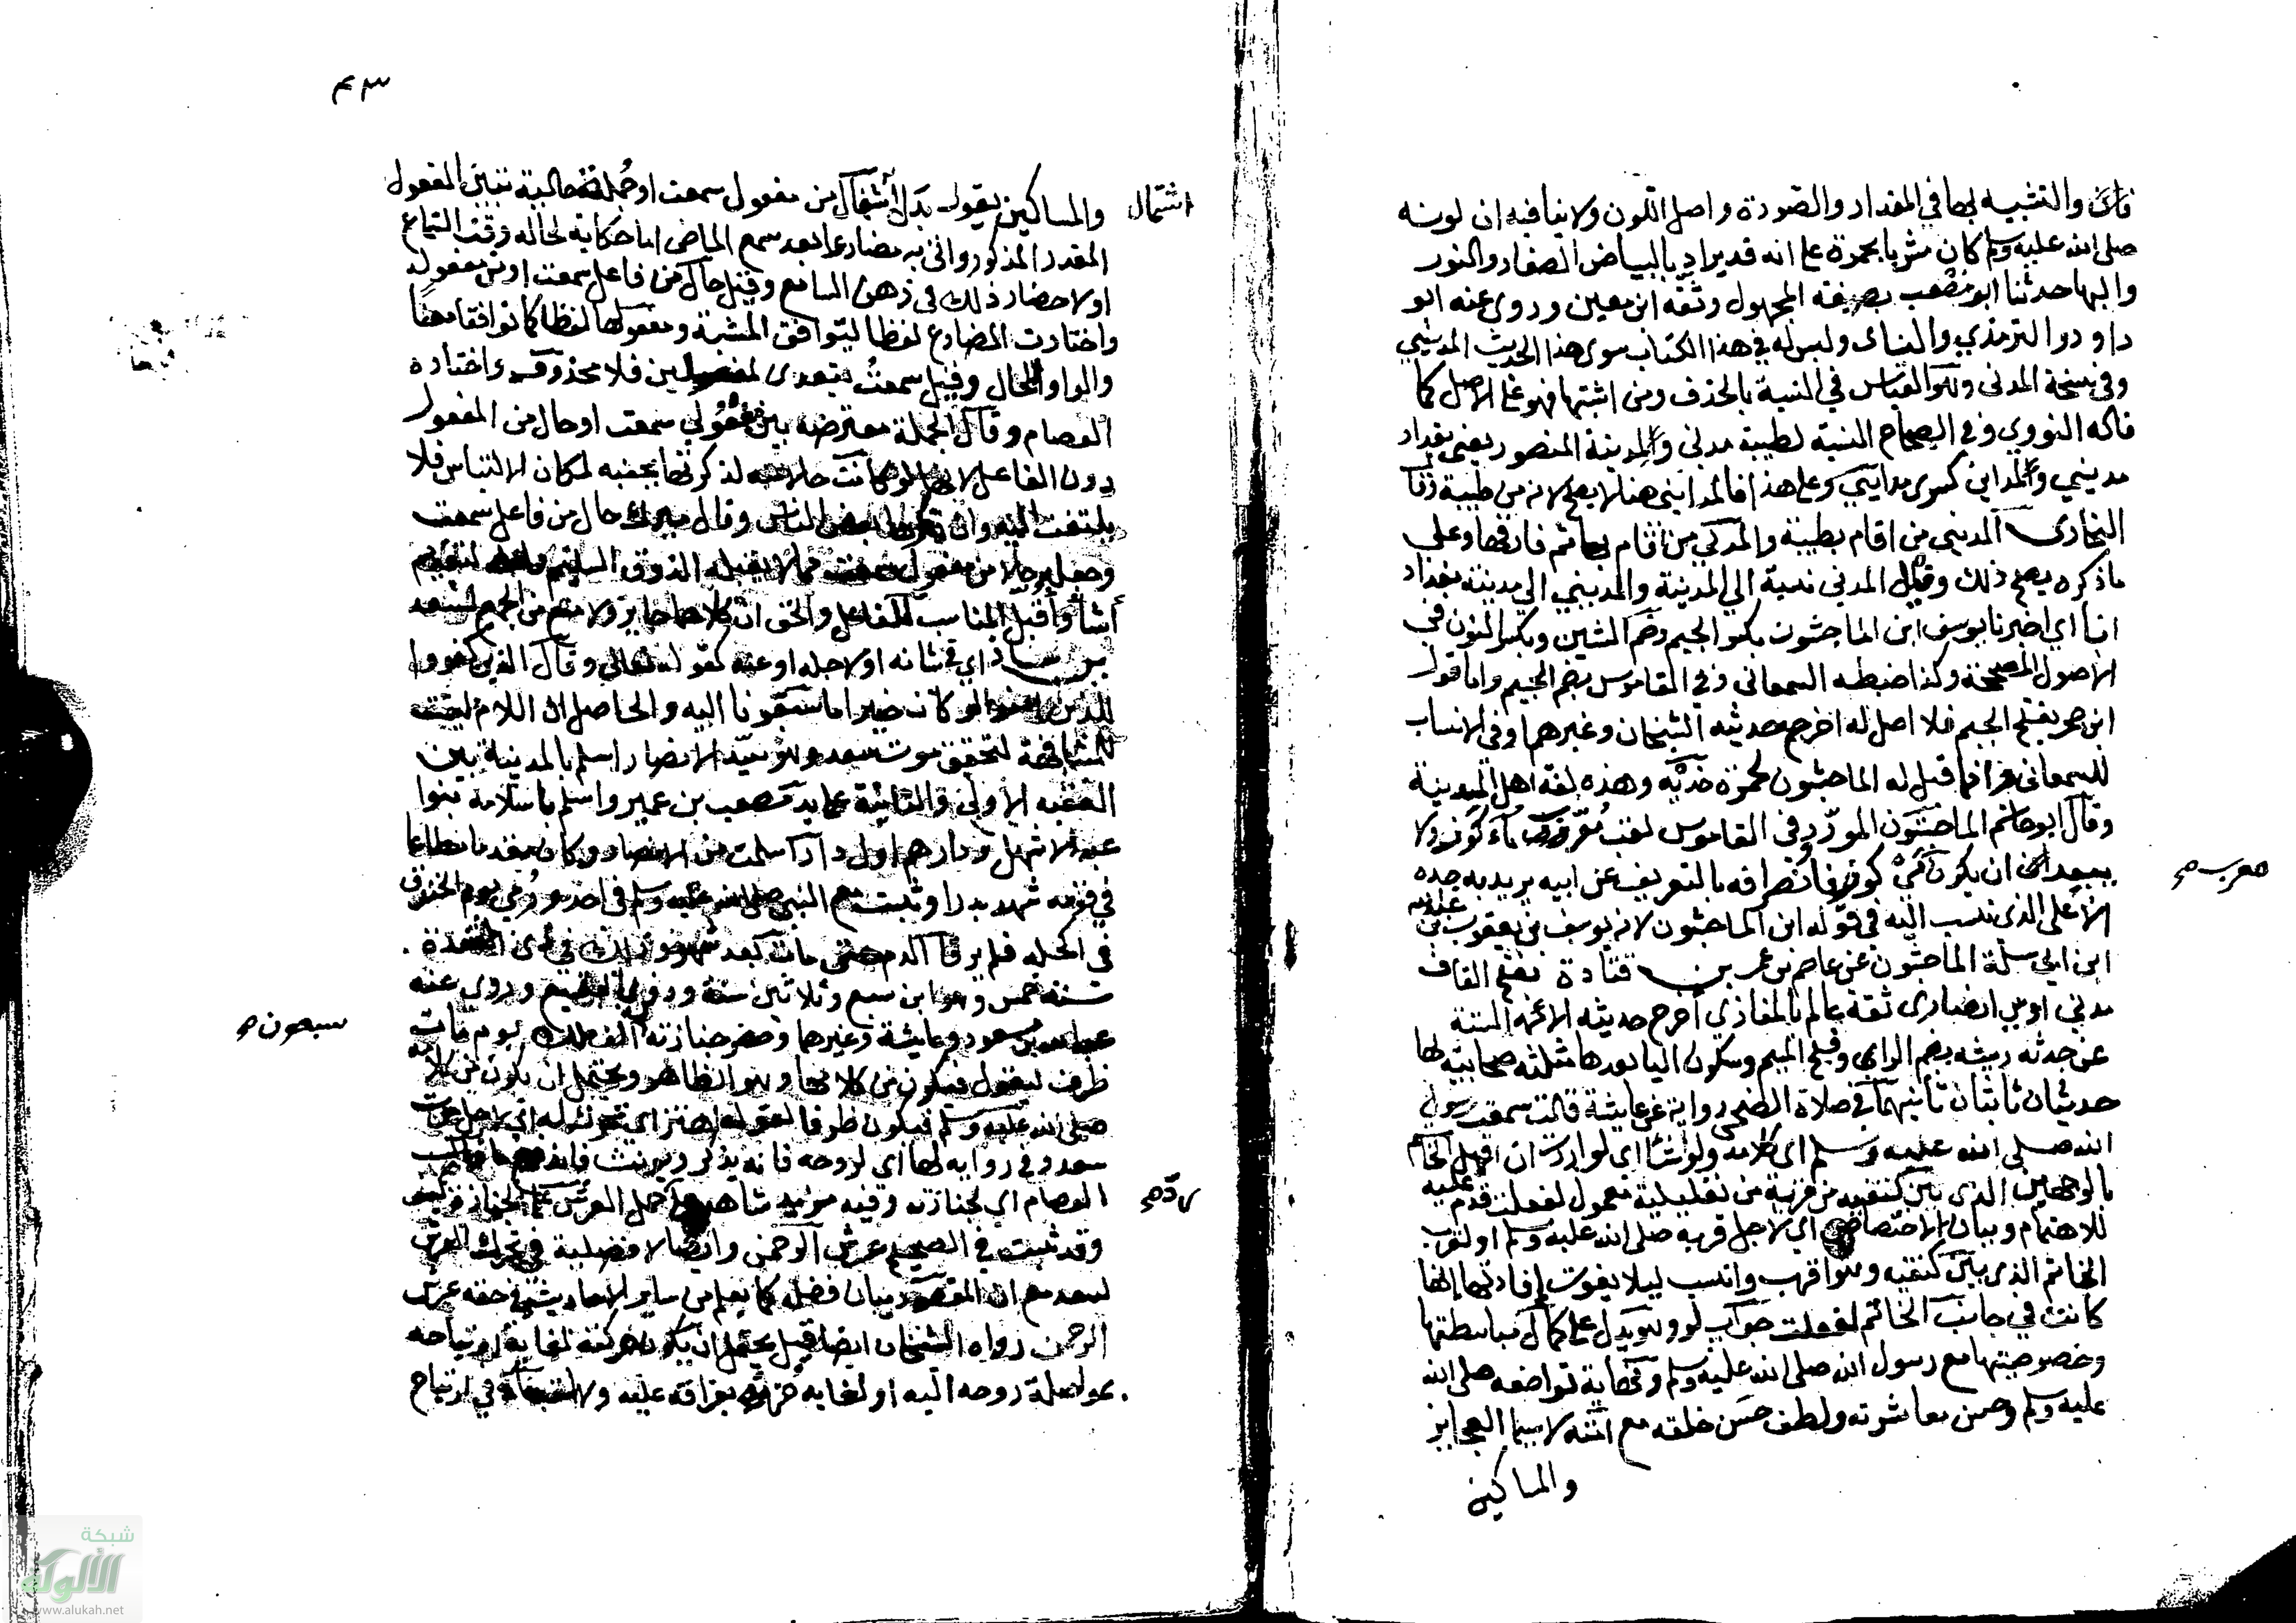 فان والتشبيه بها في المقدار والصورة واصل اللون ولا ينافيه ان لونه
صلى الله عليه وسلم كان مشربا بحمرة على انه قد يراد بالبياض الصفاء والنور
والبها حدثنا ابو مصعب بصيغة المجهول وثقه ابن معين وروى عنه ابو
داود والترمذي والنسائي وليس له في هذا الكتاب سوى هذا الحديث المديني
وفي نسخة المدني وهو القياس في النسبة بالحذف ومن اثبتها فهو على الاصل كما
قاله النووي وفي الصحاح النسبة لطيبة مدني ولمدينة المنصور يعني بغداد
مديني ولمداين كسرى مدايني وعلى هذا فالمدايني هنا لا يصح لانه من طيبة وقال
البخاري المديني من اقام بطيبة والمدني من اقام بها ثم فارقها وعلى
ماذكره يصح ذلك وقيل المدني نسبة الى المدينة والمديني الى مدينة بغداد
انبا اي اخبرنا يوسف ابن الماجشون بكسر الجيم وضم الشين وبكسر النون في
الاصول المصححة وكذا ضبطه السمعاني وفي القاموس بضم الجيم واما قول
ابن حجر بفتح الجيم فلا اصل له اخرج حديثه الشيخان وغيرهما وفي الانساب
للسمعاني قرانما قيل له الماجشون لحمرة خديه وهذه لغة اهل المدينة
وقال ابو حاتم الماجشون المورد وفي القاموس لفت معرب ماه كون ولا
معرب صح
يبعد ان يكون كون فانصرافه بالتعريف عن ابيه يريد به جده
الاعلى الذي نسب اليه في قوله ابن الماجشون لانه يوسف بن يعقوب بن عبد الله
ابن ابي سلمة الماجشون عن عاصم بن عمر بن قتادة بفتح القاف
مدني اوسي انصاري ثقة عالم بالمغازي اخرج حديثه الائمة الستة
عن جدته رميثه بضم الراي وفتح الميم وسكون اليا بعدها مثلثة صحابية لها
حديثان ثابتان ثانيهما في صلاة الضحى رواية عن عايشة قالت سمعت رسول
الله صلى الله عليه وسلم اي كلامه ولو اشا اي لو اردت ان اقبل الخاتم
بالوجهين الذي بين كتفيه من قربه من تعليلية معمول لفعلت قدم عليه
للاهتمام وبيان الاختصاص اي لاجل قربه صلى الله عليه وسلم او لقرب
الخاتم الذي بين كتفيه وهو اقرب وانسب ليلا يفوت افادتها انها
كانت في جانب الخاتم لفعلت جواب لو وهو يدل على كمال مباسطتها
وخصوصيتها مع رسول الله صلى الله عليه وسلم وحكاية تواضعه صلى الله
عليه وسلم وحسن معاشرته ولطف حسن خلقه مع امته لا سيما العجايز
والمساكين
٤٣
والمساكين يقول بدل اشتمال من مفعول سمعت او جملة حالية تبين المفعول
اشتمال
المقدر المذكور واتى به مضارعا بعد سمع الماضي اما حكاية لحاله وقت السماع
او لاحضار ذلك في ذهن السامع وقيل حال من فاعل سمعت او من مفعوله
واختارت المضارع لفظا ليتوافق المشبة ومفعولها لفظا كما توافقا معنا
والواو للحال وقيل سمعت يتعدى لمفعولين فلا محذوف واختاره
العصام وقال الجملة معترضة بين مفعولي سمعت او حال من المفعول
دون الفاعل لانها لو كانت حالا عنه لذكرتها بجنبه لمكان الالتباس فلا
يلتفت اليه وان بعض الناس وقال ميرك حال من فاعل سمعت
وجعله حالا من مفعول سمعت مما لا يقبله الذوق السليم
اشا واقبل المناسب للفاعل والحق ان كلاهما جايز ولا منع من الجمع لسعد
بن معاذ اي في شانه او لاجله او عنه كقوله تعالى وقال الذين كفروا
للذين امنوا لو كان خيرا ما سبقونا اليه والحاصل ان اللام ليست
للمشافهة لتحقق موت سعد وهو سيد الانصار اسلم بالمدينة بين
العقبة الاولى والثانية على يد مصعب بن عمير واسلم باسلامه بنوا
عبد الاشهل ودارهم اول دار اسلمت من الانصار وكان مقدما مطاعا
في قومه شهد بدرا وثبت مع النبي صلى الله عليه وسلم في احد ورمي يوم الخندق
في اكحله فلم يرقا الدم حتى مات بعد شهر وذلك في ذي القعدة
سنة خمس وهو ابن سبع وثلاثين سنة ودفن بالبقيع وروى عنه
عبد الله بن مسعود وعايشة وغيرهما وحضر جنازته الف ملك يوم مات
سبعون صح
ظرف ليقول فيكون من كلامها وهو الظاهر ويحتمل ان يكون من كلامه
صلى الله عليه وسلم فيكون ظرفا لقوله اهتز اي تحرك له اي لاجل موت
سعد وفي رواية لها اي لروحه فانه يذكر ويونث
العصام اي لجنازته وفيه مزيد شاهد على حمل العرش على الجنازة كيف
وقد ثبت في الصحيح عرش الرحمن وايضا لا فضيلة في تحرك العرش
لسعد مع ان المقصود بيان فضله كما يعلم من ساير الاحاديث في حقه عرش
الرحمن رواه الشيخان ايضا قيل يحتمل ان يكون حركته لغاية ارتياحه
بمواصلة روحه اليه او لغاية حزنه بفراقه عليه ولا استبعاد في ارتياح
شبكة
الألوكة
www.alukah.net